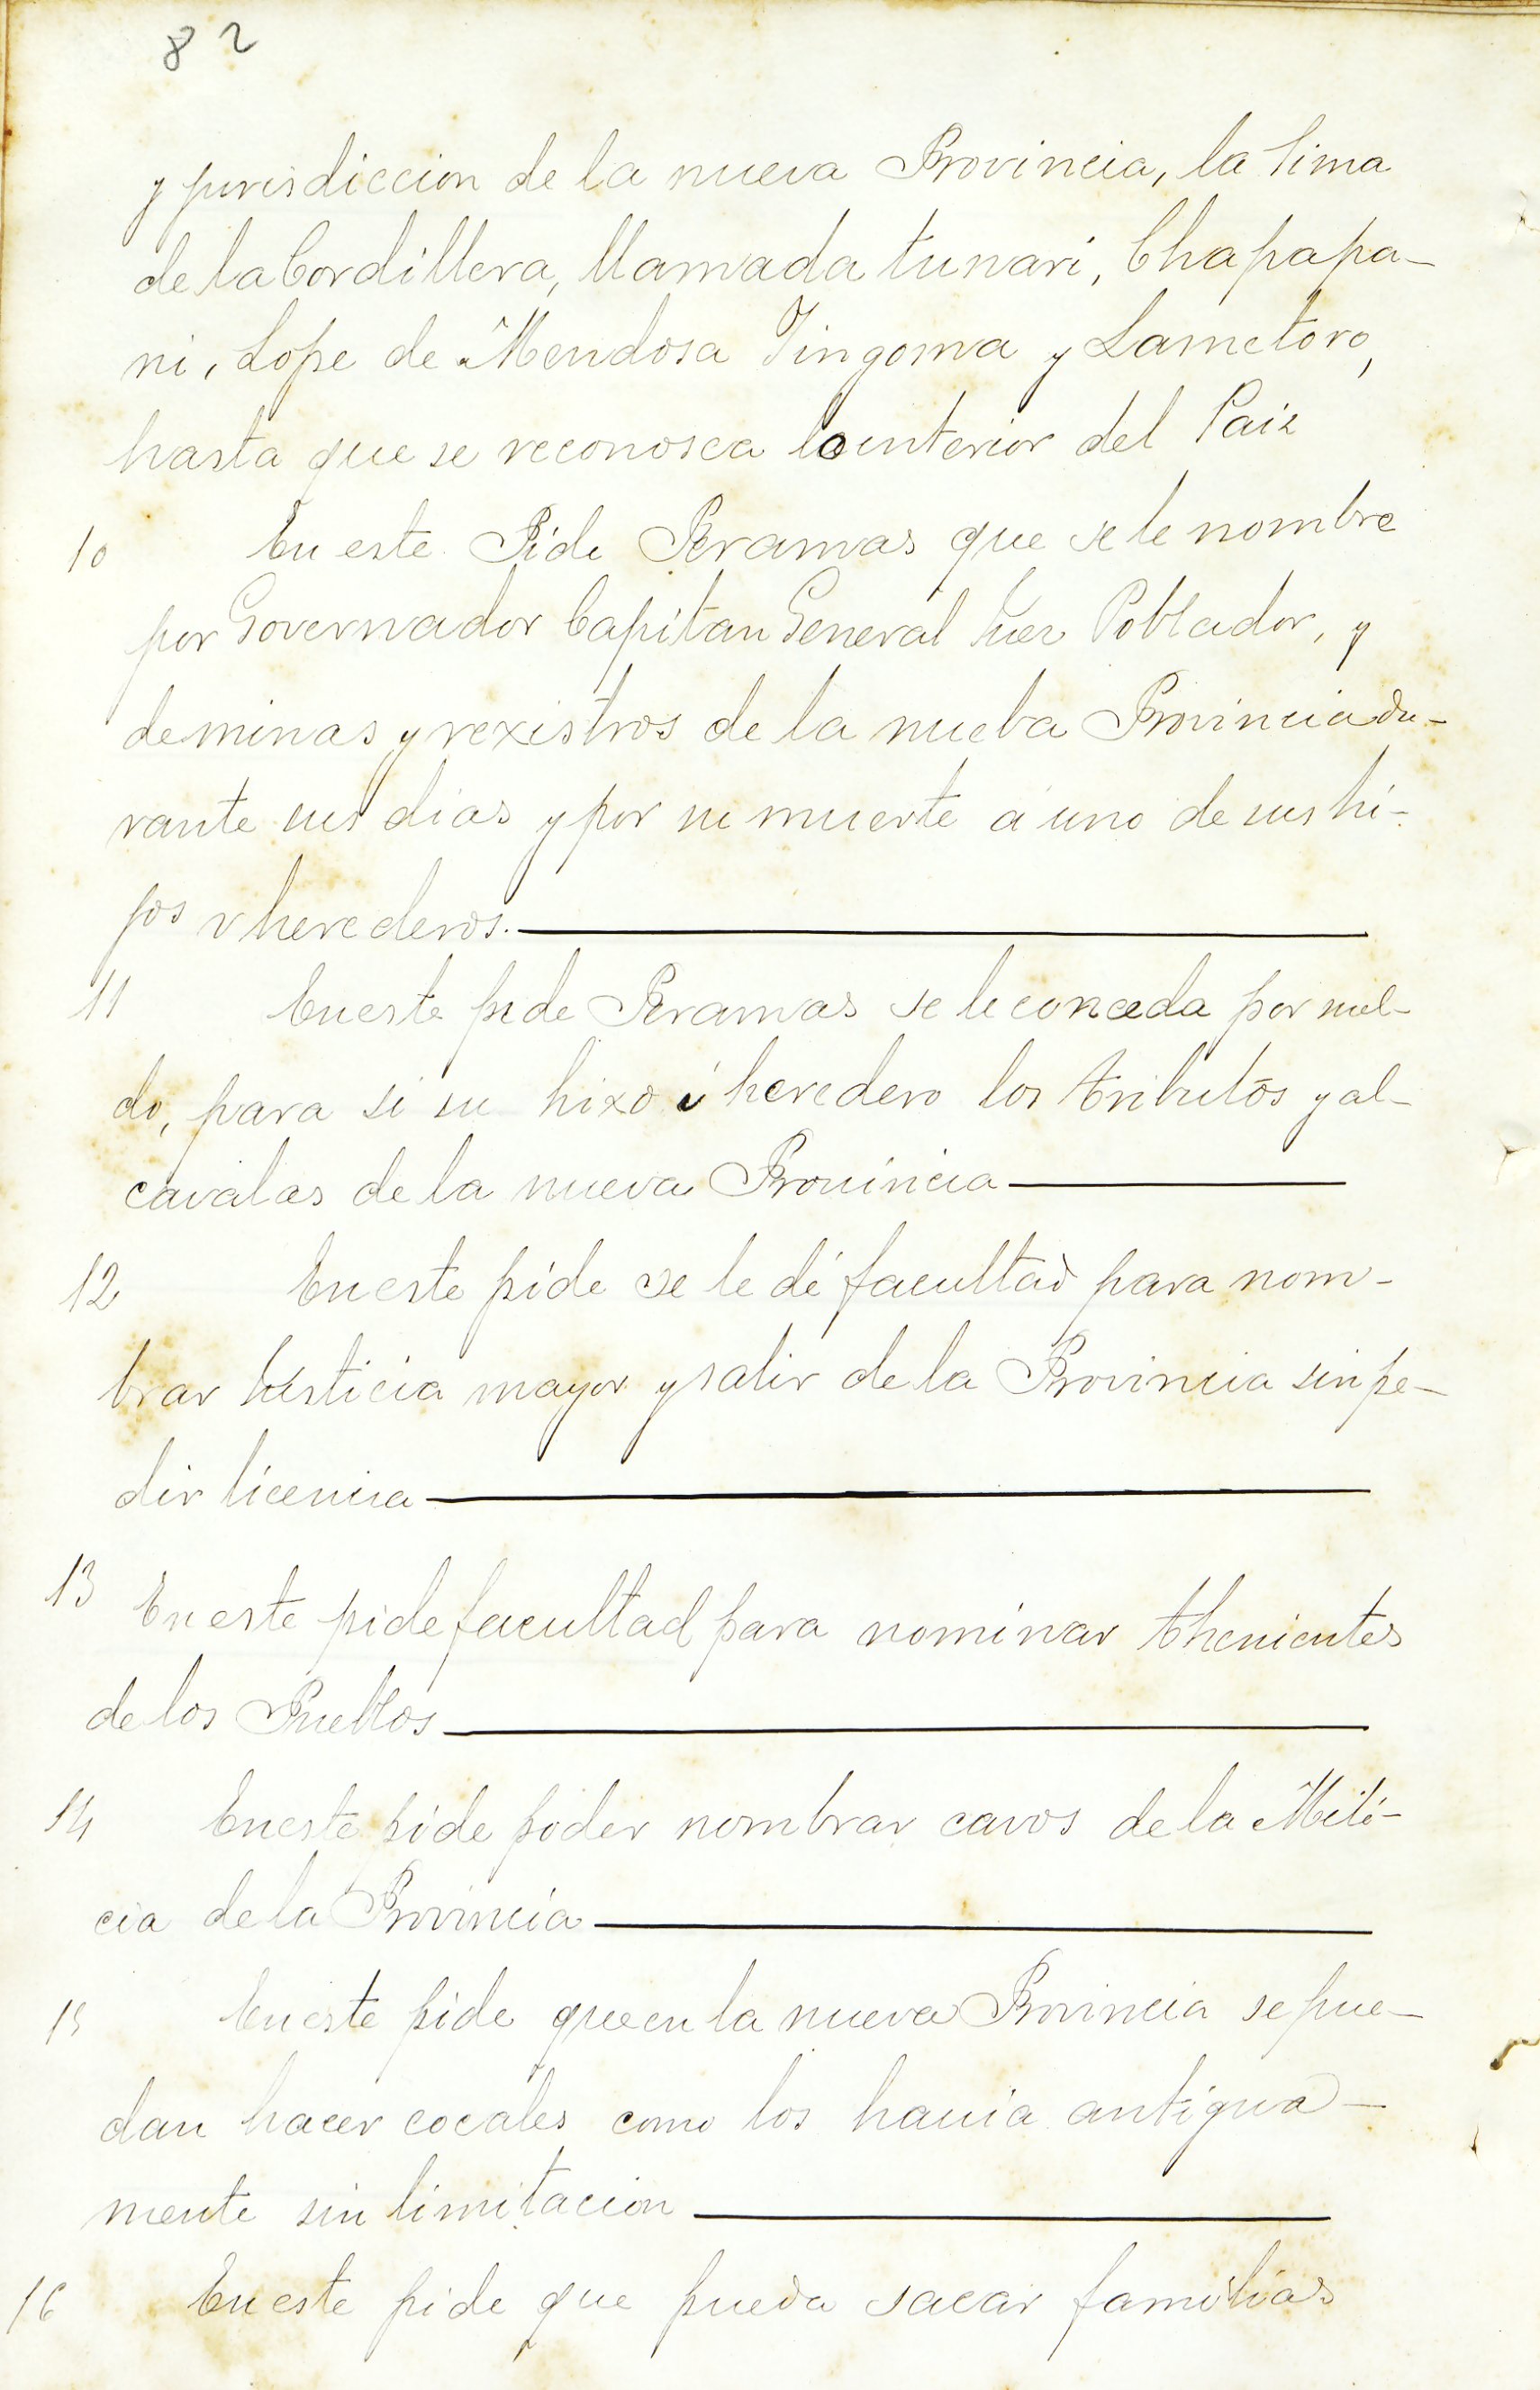 82
y jurisdiccion de la nueva Provincia, la sima
de la Cordillera, llamada tunari, Chapapa-
ni, Lope de Mendosa Tingoma y Lametoro,
hasta que se reconosca lo interior del Paiz
10 En este Pide Peramas que se le nombre
por Governador Capitan General Juez Poblador, y
de minas y rexistros de la nueba Provincia du-
rante sus dias y por su muerte á uno de sus hi-
jos v herederos.
11 En este pide Peramas se le conceda por suel-
do, para si su hixo ó heredero los tributos y al-
cavalas de la nueva Provincia
12 En este pide se le dé facultad para nom-
brar Justicia mayor y salir de la Provincia sin pe-
dir licencia
13 En este pide facultad para nominar thenientes
de los Pueblos
14 En este pide poder nombrar cavos de la Mili-
cia de la Provincia
15 En este pide que en la nueva Provincia se pue-
dan hacer cocales como los havia antigua-
mente sin limitacion
16 En este pide que pueda sacar familias